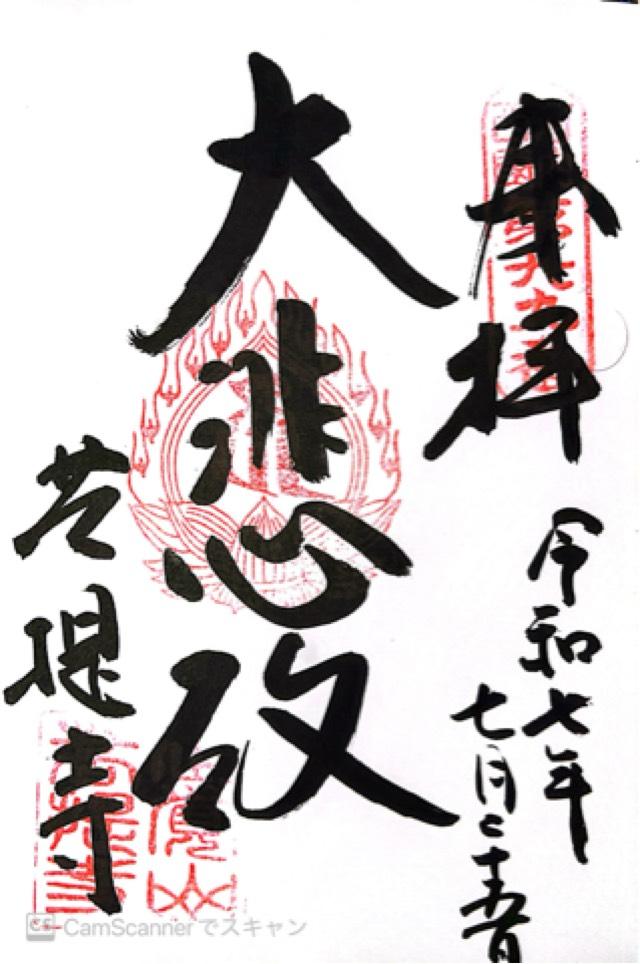 奉拝
令和七年
七月二十五日
大悲殿
菩提寺
CS CamScanner でスキャン